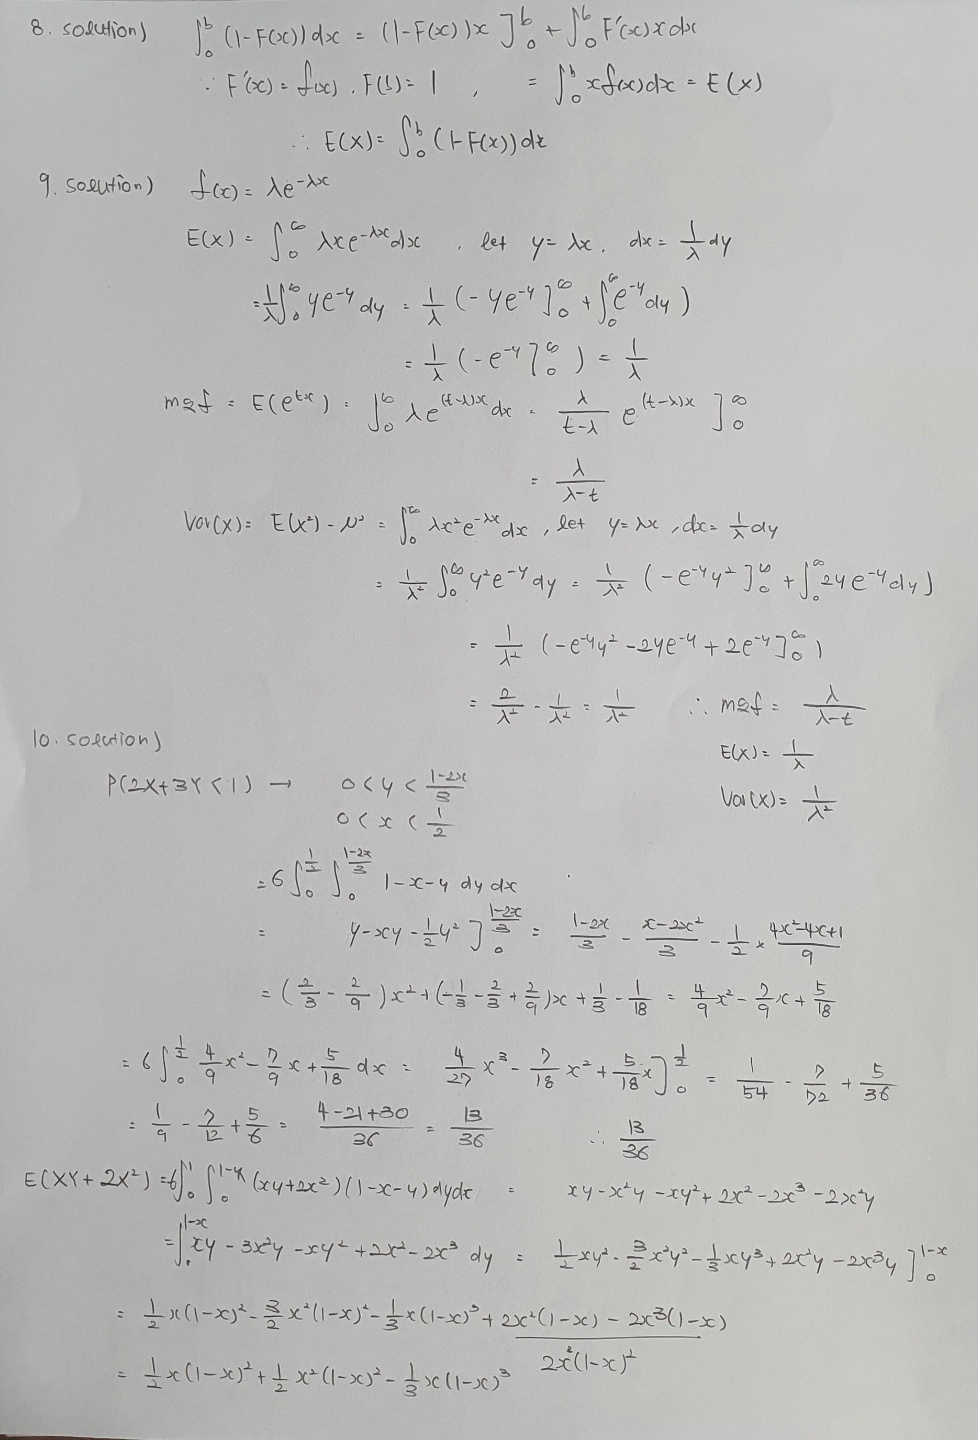 8. solution) ∫₀ᵇ (1-F(x)) dx = (1-F(x))x ]₀ᵇ + ∫₀ᵇ F'(x)x dx
∵ F'(x) = f(x), F(b) = 1, = ∫₀ᵇ xf(x)dx = E(x)
∴ E(X) = ∫₀ᵇ (1-F(x)) dx
9. solution) f(x) = λe^{-λx}
E(X) = ∫₀^∞ λxe^{-λx} dx, let y = λx, dx = 1/λ dy
= 1/λ ∫₀^∞ ye^{-y} dy = 1/λ (-ye^{-y} ]₀^∞ + ∫₀^∞ e^{-y} dy)
= 1/λ (-e^{-y} ]₀^∞ ) = 1/λ
mgf = E(e^{tx}) = ∫₀^∞ λe^{(t-λ)x} dx = λ/(t-λ) e^{(t-λ)x} ]₀^∞
= λ/(λ-t)
Var(X) = E(X²) - μ² = ∫₀^∞ λx²e^{-λx} dx, let y = λx, dx = 1/λ dy
= 1/λ² ∫₀^∞ y²e^{-y} dy = 1/λ² (-e^{-y}y² ]₀^∞ + ∫₀^∞ 2ye^{-y} dy)
= 1/λ² (-e^{-y}y² - 2ye^{-y} + 2e^{-y} ]₀^∞ )
= 2/λ² - 1/λ² = 1/λ² ∴ mgf = λ/(λ-t)
E(X) = 1/λ
Var(X) = 1/λ²
10. solution)
P(2X+3Y<1) → 0<y<(1-2x)/3
0<x<1/2
= 6∫₀^{1/2} ∫₀^{(1-2x)/3} 1-x-y dy dx
= y-xy-1/2 y² ]₀^{(1-2x)/3} = (1-2x)/3 - (x-2x²)/3 - 1/2 × (4x²-4x+1)/9
= (2/3 - 2/9)x² + (-1/3 - 2/3 + 2/9)x + 1/3 - 1/18 = 4/9 x² - 7/9 x + 5/18
= 6∫₀^{1/2} 4/9 x² - 7/9 x + 5/18 dx = 4/27 x³ - 7/18 x² + 5/18 x ]₀^{1/2} = 1/54 - 7/72 + 5/36
= 1/9 - 7/12 + 5/6 = (4-21+30)/36 = 13/36 ∴ 13/36
E(XY+2X²) = 6∫₀¹ ∫₀^{1-x} (xy+2x²)(1-x-y) dydx = xy-x²y-xy²+2x²-2x³-2x²y
= ∫₀^{1-x} xy-3x²y-xy²+2x²-2x³ dy = 1/2 xy² - 3/2 x²y² - 1/3 xy³ + 2x²y - 2x³y ]₀^{1-x}
= 1/2 x(1-x)² - 3/2 x²(1-x)² - 1/3 x(1-x)³ + 2x²(1-x) - 2x³(1-x)
2x²(1-x)²
= 1/2 x(1-x)² + 1/2 x²(1-x)² - 1/3 x(1-x)³